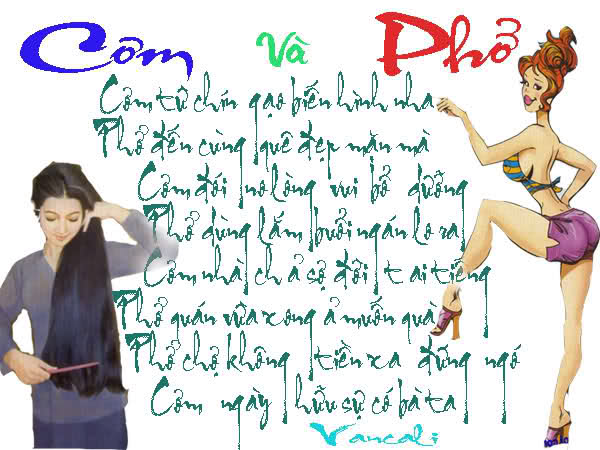 Cơm Và Phở
Cơm từ chín gạo biến hình nha
Phở đến cùng quê đẹp mặn mà
Cơm đói no lòng vui bổ dưỡng
Phở dùng lắm buổi ngán lo ra
Cơm nhà chả sợ đời tai tiếng
Phở quán vừa xong ả muốn quà
Phở chợ không tiền xa đứng ngó
Cơm ngày hữu sự có bà ta
Vancali